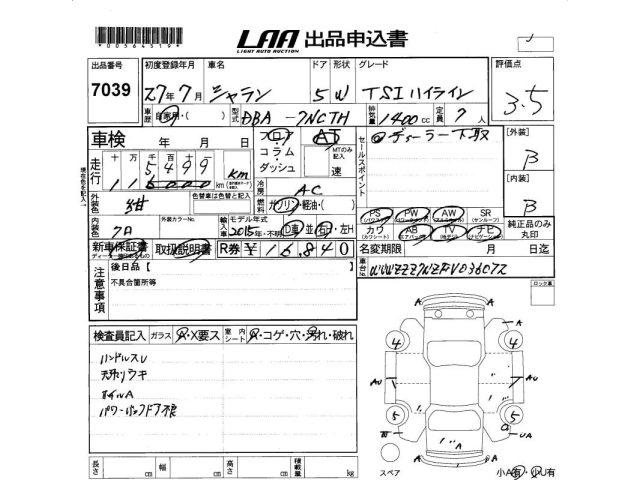 *00564519*
LAA 出品申込書
LIGHT AUTO AUCTION
出品番号 初度登録年月 車名 ドア 形状 グレード 評価点
7039 27年7月 シャラン 5 W TSIハイライン 3.5
車歴 自家用・( ) 型式 DBA-7NCTH 排気量 1400cc 定員 7人
車検 年 月 日
フロア・コラム・ダッシュ AT MTのみ記入 速
セールスポイント ディーラー下取
[外装] B
[内装] B
走行 十万千百十 km
外装色 紺 色替車は色替と記入
冷房 AC
燃料 ガソリン・軽油・( )
内装色 クロ 外装カラーNo. 輸入車 モデル年式 2015年・不明 D車 並 右H・左H
PS PW AW SR
(パワステ) (サンルーフ)
カワ AB TV ナビ
(カワシート) (エアバッグ)
純正品のみ丸印
新車保証書 取扱説明書 R券 ¥16,840 名変期限 月 日迄
注意事項 後日品【
不具合箇所等
車台No.
検査員記入 ガラス A・X要ス 室内シート A・コゲ・穴・汚れ・破れ
ハンドルスレ
天張リウキ
ホイルA
パワーバックドア不良
4 4
AU
5 5
UA
A
長さ cm 幅 cm 高さ cm 積載量 kg
スペア 小A有・小U有